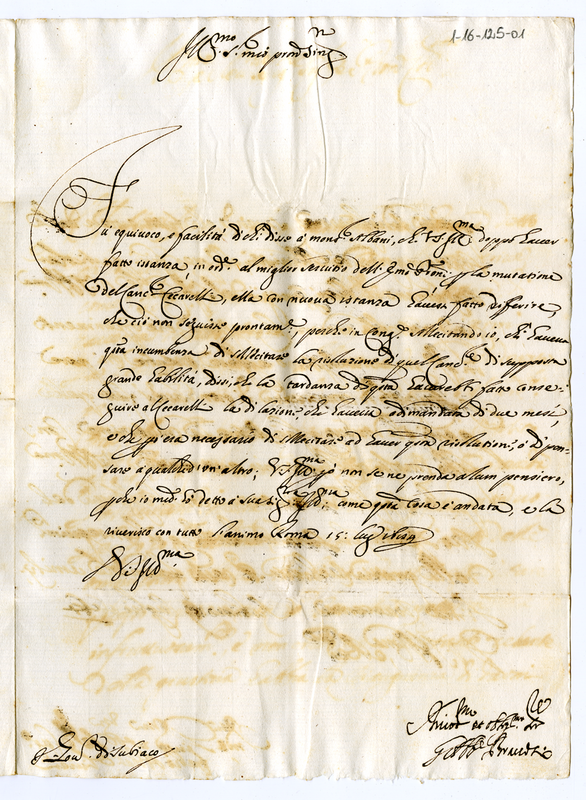 1-16-125-01
Ill.mo S.r mio pron Sing.
Fu equivoco, e facilità di chi disse à mons.r Albani, che VS Ill.ma doppo haver
fatto istanza in ord.e al miglior servitio dell' p la mutatione
del Canc.e Ceccarelli, ella con nuova istanza havesse fatto differire,
che ciò non seguisse prontam.te, perche in Cong.e sollecitando io, che haveva
q.ta incumbenza di sollecitare la risolutione di quel Canc.e di supposta
grande habilità, dissi, che la tardanza di q.ta haverebbe fatto conse-
guire al Ceccarelli la dilatione, che haveva addimandata di due mesi,
e che p.ciò era necessario di sollecitare ad haver q.ta risolutione, ò di pen-
sare à qualched'un' altro; VS Ill.ma p.ciò non se ne prenda alcun pensiero,
p.che io med.o hò detto à sua Sig.ria Ill.ma, come q.ta cosa è andata, e la
riverisco con tutto l'animo Roma 15: lug.o
VS Ill.ma
di Subiaco
et obblig.mo